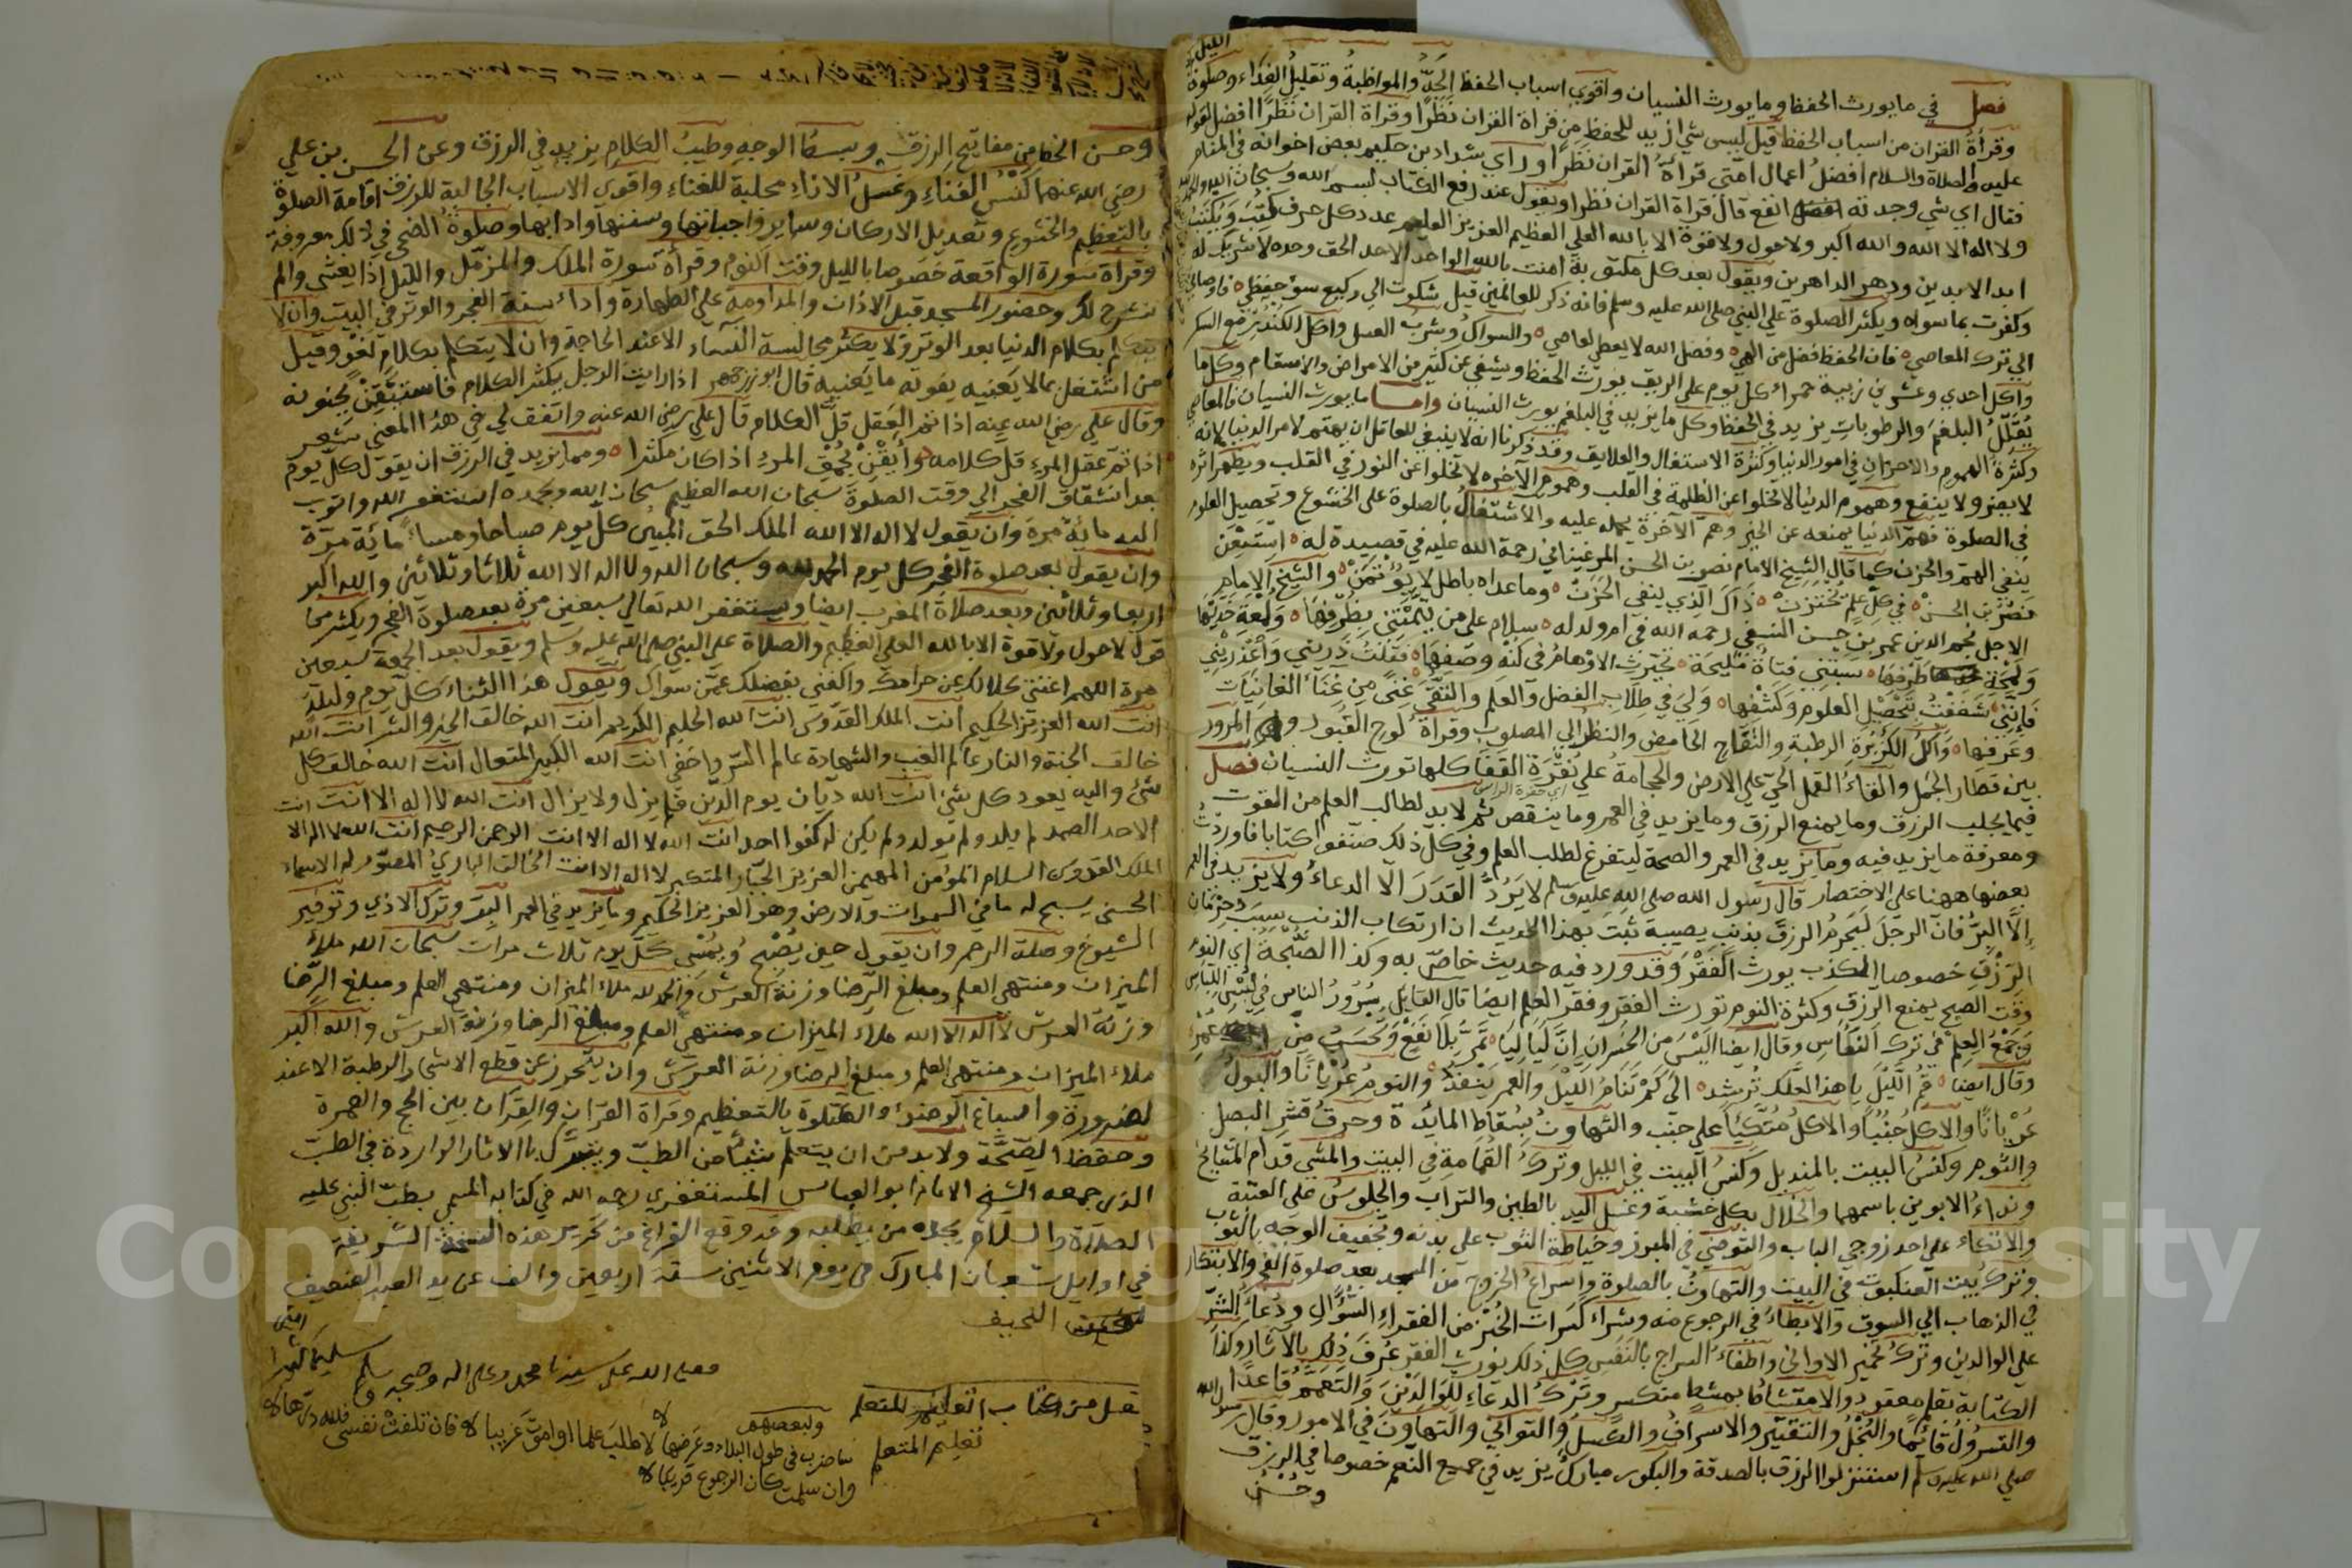 فصل في ما يورث الحفظ وما يورث النسيان واقوي اسباب الحفظ الجد والمواظبة وتقليل الغذاء وصلوة الليل
وقرأة القران من اسباب الحفظ قيل ليس شي ازيد للحفظ من قراة القران نظرا وقراة القران نظرا افضل لقوله
عليه الصلاة والسلام افضل اعمال امتي قرأة القران نظرا وراي شداد بن حكيم بعض اخوانه في المنام
فقال اي شي وجدته انفع قال قراة القران نظرا ويقول عند رفع الكتاب بسم الله وسبحان الله والحمد لله
ولا اله الا الله والله اكبر ولا حول ولا قوة الا بالله العلي العظيم العزيز العليم عدد كل حرف كتب ويكتب
ابد الابدين ودهر الداهرين ويقول بعد كل مكتوبة امنت بالله الواحد الاحد الحق وحده لا شريك له
وكفرت بما سواه ويكثر الصلوة علي النبي صلى الله عليه وسلم فانه ذكر للعالمين قيل شكوت الي وكيع سوء حفظي فاوصاني
الي ترك المعاصي فان الحفظ فضل من الهي وفضل الله لا يعطي لعاصي والسواك وشرب العسل واكل الكندر مع السكر
واكل احدي وعشرين زبيبة حمراء كل يوم علي الريق يورث الحفظ ويشفي عن كثير من الامراض والاسقام وكل ما
يقلل البلغم والرطوبات يزيد في الحفظ وكل ما يزيد في البلغم يورث النسيان واما ما يورث النسيان فالمعاصي
وكثرة الهموم والاحزان في امور الدنيا وكثرة الاشتغال والعلايق وقد ذكرنا انه لا ينبغي للعاقل ان يهتم لامر الدنيا لانه
لا يضر ولا ينفع وهموم الدنيا لا تخلوا عن الظلمة في القلب وهموم الآخره لا تخلوا عن النور في القلب ويظهر اثره
في الصلوة فهم الدنيا يمنعه عن الخير وهم الآخرة يحمله عليه والاشتغال بالصلوة على الخشوع وتحصيل العلوم
ينفي الهم والحزن كما قال الشيخ الامام نصر بن الحسن المرغيناني رحمة الله عليه في قصيدة له استعن
نصر بن الحسن في كل علم يختزن ذاك الذي ينفي الحزن وما عداه باطل لا يؤتمن والشيخ الامام
الاجل نجم الدين عمر بن حسن النسفي رحمه الله في ام ولد له سلام علي من تيمتني بظرفها ولمعة خديها
ولمحة طرفها سبتني فتاة مليحة تحيرت الاوهام في كنه وصفها فقلت ذريني واعذريني
فانني شغفت بتحصيل العلوم وكشفها ولي في طلاب الفضل والعلم والتقي غني من غناء الغانيات
وعرفها واكل الكزبرة الرطبة والتفاح الحامض والنظر الي المصلوب وقراة لوح القبور والمرور
بين قطار الجمل والقاء القمل الحي علي الارض والحجامة علي نقرة القفا كلها تورث النسيان فصل
اي حفرة الراس
فيما يجلب الرزق وما يمنع الرزق وما يزيد في العمر وما ينقص ثم لا بد لطالب العلم من القوت
ومعرفة ما يزيد فيه وما يزيد في العمر والصحة ليتفرغ لطلب العلم وفي كل ذلك صنفوا كتابا فاوردت
بعضها ههنا علي الاختصار قال رسول الله صلى الله عليه وسلم لا يرد القدر الا الدعاء ولا يزيد في العمر
الا البر فان الرجل ليحرم الرزق بذنب يصيبه ثبت بهذا الحديث ان ارتكاب الذنب سبب حرمان
الرزق خصوصا الكذب يورث الفقر وقد ورد فيه حديث خاص به وكذا الصبحة اي النوم
وقت الصبح يمنع الرزق وكثرة النوم تورث الفقر وفقر العلم ايضا قال القايل سرور الناس في لبس اللباس
وجمع العلم في ترك النعاس وقال ايضا اليس من الخسران ان لياليا تمر بلا نفع وتحسب من عمر
وقال ايضا قم الليل يا هذا لعلك ترشد الي كم تنام الليل والعمر ينفد والنوم عريانا والبول
عريانا والاكل جنبا والاكل متكئا علي جنب والتهاون بسقاط المائدة وحرق قشر البصل
والثوم وكنس البيت بالمنديل وكنس البيت في الليل وترك القمامة في البيت والمشي قدام المشايخ
ونداء الابوين باسمهما والخلال بكل خشبة وغسل اليد بالطين والتراب والجلوس علي العتبة
والاتكاء علي احد زوجي الباب والتوضي في المبرز وخياطة الثوب علي بدنه وتجفيف الوجه بالثوب
وترك بيت العنكبوت في البيت والتهاون بالصلوة واسراع الخروج من المسجد بعد صلوة الفجر والابتكار
في الذهاب الي السوق والابطاء في الرجوع منه وشراء كسرات الخبز من الفقراء السؤال ودعاء الشر
علي الوالدين وترك تخمير الاواني واطفاء السراج بالنفس كل ذلك يورث الفقر عرف ذلك بالآثار وكذا
الكتابة بقلم معقود والامتشاط بمشط منكسر وترك الدعاء للوالدين والتعمم قاعدا
والتسرول قائما والبخل والتقتير والاسراف والكسل والتواني والتهاون في الامور وقال رسول الله
صلي الله عليه وسلم استنزلوا الرزق بالصدقة والبكور مبارك يزيد في جميع النعم خصوصا في الرزق
وحسن
وحسن الخط من مفاتيح الرزق وبسط الوجه وطيب الكلام يزيد في الرزق وعن الحسن بن علي
رضي الله عنهما كنس الفناء وغسل الاناء مجلبة للغناء واقوي الاسباب الجالبة للرزق اقامة الصلوة
بالتعظيم والخشوع وتعديل الاركان وساير واجباتها وسننها وادابها وصلوة الضحي في ذلك معروفة
وقراة سورة الواقعة خصوصا بالليل وقت النوم وقرأة سورة الملك والمزمل والليل اذا يغشي والم
نشرح لك وحضور المسجد قبل الاذان والمداومة علي الطهارة واداء سنة الفجر والوتر في البيت وان لا
يتكلم بكلام الدنيا بعد الوتر ولا يكثر مجالسة النساء الا عند الحاجة وان لا يتكلم بكلام لغو وقيل
من اشتغل بما لا يعنيه يفوته ما يعنيه قال ابوزرجمهر اذا رايت الرجل يكثر الكلام فاستيقن بجنونه
وقال علي رضي الله عنه اذا تم العقل قل الكلام قال علي رضي الله عنه واتفق لي في هذا المعني شعر
اذا تم عقل المرء قل كلامه وأيقن بحمق المرء اذا كان مكثرا ومما يزيد في الرزق ان يقول كل يوم
بعد انشقاق الفجر الي وقت الصلوة سبحان الله العظيم سبحان الله وبحمده استغفر الله واتوب
اليه مائة مرة وان يقول لا اله الا الله الملك الحق المبين كل يوم صباحا ومساء مائة مرة
وان يقول بعد صلوة الفجر كل يوم الحمد لله وسبحان الله ولا اله الا الله ثلاثا وثلاثين والله اكبر
اربعا وثلاثين وبعد صلاة المغرب ايضا ويستغفر الله تعالي سبعين مرة بعد صلوة الفجر ويكثر من
قول لا حول ولا قوة الا بالله العلي العظيم والصلاة علي النبي صلي الله عليه وسلم ويقول بعد الجمعة سبعين
مرة اللهم اغنني بحلالك عن حرامك واكفني بفضلك عمن سواك ويقول هذا الثناء كل يوم وليلة
انت الله العزيز الحكيم انت الملك القدوس انت الله الحليم الكريم انت الله خالق الخير والشر انت الله
خالق الجنة والنار عالم الغيب والشهادة عالم السر واخفي انت الله الكبير المتعال انت الله خالق كل
شئ واليه يعود كل شئ انت الله ديان يوم الدين لم يزل ولا يزال انت الله لا اله الا انت انت
الاحد الصمد لم يلد ولم يولد ولم يكن له كفوا احد انت الله لا اله الا انت الرحمن الرحيم انت الله لا اله الا
الملك القدوس السلام المؤمن المهيمن العزيز الجبار المتكبر لا اله الا انت الخالق الباري المصور له الاسماء
الحسني يسبح له ما في السموات والارض وهو العزيز الحكيم وما يزيد في العمر البر وترك الاذي وتوقير
الشيوخ وصلة الرحم وان يقول حين يصبح ويمسي كل يوم ثلاث مرات سبحان الله ملاء
الميزان ومنتهي العلم ومبلغ الرضا وزنة العرش والحمد لله ملاء الميزان ومنتهي العلم ومبلغ الرضا
وزنة العرش لا اله الا الله ملاء الميزان ومنتهي العلم ومبلغ الرضا وزنة العرش والله اكبر
ملاء الميزان ومنتهي العلم ومبلغ الرضا وزنة العرش وان يتحرز عن قطع الاشجار الرطبة الا عند
لضرورة واسباغ الوضوء والصلوة بالتعظيم وقراة القران والقران بين الحج والعمرة
وحفظ الصحة ولا بد من ان يتعلم شيئا من الطب ويتبرك بالاثار الواردة في الطب
الذي جمعه الشيخ الامام ابو العباس المستغفري رحمه الله في كتابه المسمي بطب النبي عليه
الصلاة والسلام يجده من يطلبه وقد وقع الفراغ من تحرير هذه النسخة الشريفة
في اوايل شعبان المبارك في يوم الاثنين سنة اربعين والف عن يد العبد الضعيف
النحيف
صلي الله علي سيدنا محمد وعلى اله وصحبه وسلم تسليما كثيرا
امين
نقل من كتاب تعليم المتعلم
تعليم المتعلم
ولبعضهم
ساضرب في طول البلاد وعرضها لاطلب علما او اموت غريبا فان تلفت نفسي فلله درها
وان سلمت كان الرجوع قريبا
Copyright © King Saud University